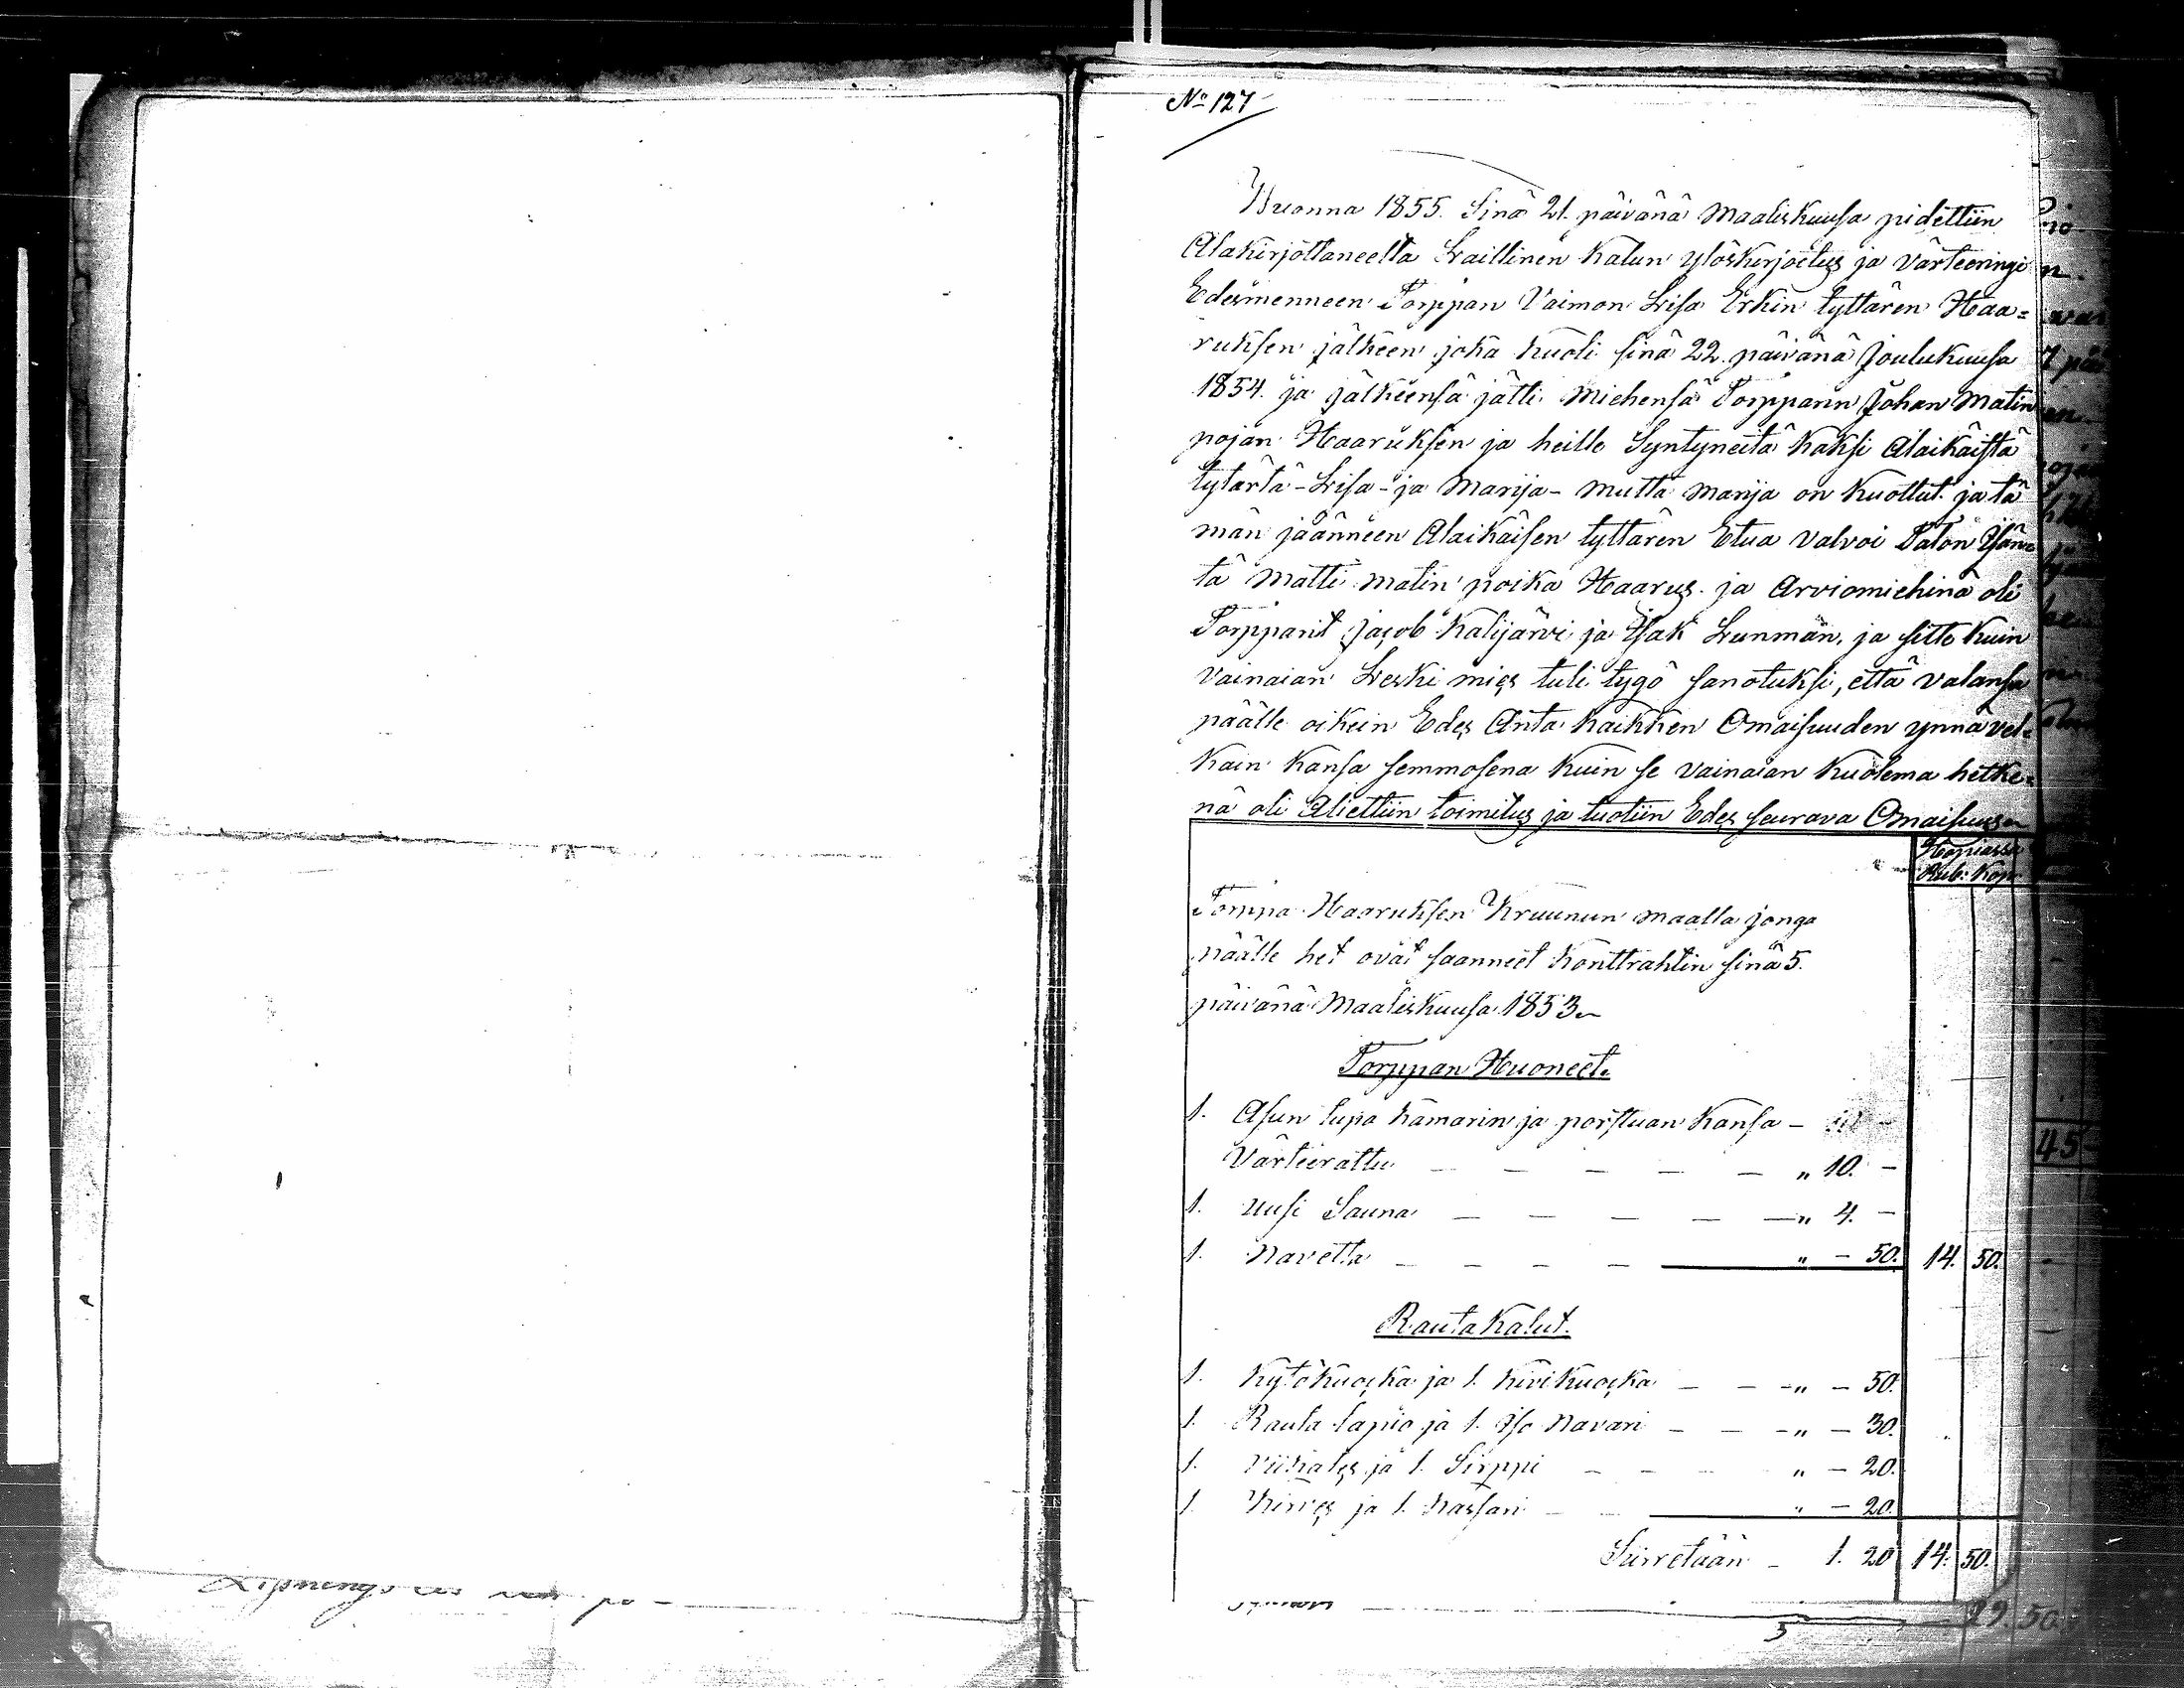 No 127
Wuonna 1855. Sinä 21. päivänä Maaliskuusa pidettiin
Alakirjottaneelta Laillinen Kalun ylöskirjoitus ja Värteeringi
Edesmenneen Torppan Vaimon Lisa Erkin tyttären Haa=
ruksen jälkeen joka kuoli sinä 22. päivänä Joulukuusa
1854. ja jälkeensä jätti Miehensä Torpparin Johan Matin
pojan Haaruksen ja heille Syntyneitä kaksi Alaikäistä
tytärtä - Lisa - ja Marija - mutta Marija on kuollut ja tä
män jäänneen Alaikäisen tyttären Etua valvoi Talon Isän=
tä Matti Matin poika Haarus ja Arviomiehinä oli
Torpparit Jacob Kalijärvi ja Isak Lunmän, ja sitte kuin
vainaian Leski mies tuli tygö sanotuksi, että valansa
päälle oikein Edes Anta kaikken Omaisuuden ynnä vel=
kain kansa semmosena kuin se vainaian kuolema hetke=
nä oli Aliettiin toimitus ja tuotiin Edes seurava Omaisuus
Hopiassa
Rub. Kop.
Torppa Haaruksen Kruunun maalla jonga
päälle het ovat saanneet Konttrahtin sinä 5.
päivänä Maaliskuusa 1853
Torppan Huoneet.
1. Asun tupa kamarin ja porstuan kansa -
Värteerattu — — — — — „ 10. -
1. Uusi Sauna — — — — — „ 4. -
1. Navetta — — — — „ - 50. 14. 50.
Rauta Kalut.
1. Kytökuocka ja 1. kivikuocka — — „ - 50.
1. Rauta lapio ja 1. Iso Navari — — „ - 30.
1. Viikates ja 1. Sirppi — — „ - 20.
1. Kirves ja 1. kassari — — „ - 20.
Siirretään - 1. 20 14. 50.
29. 50
45